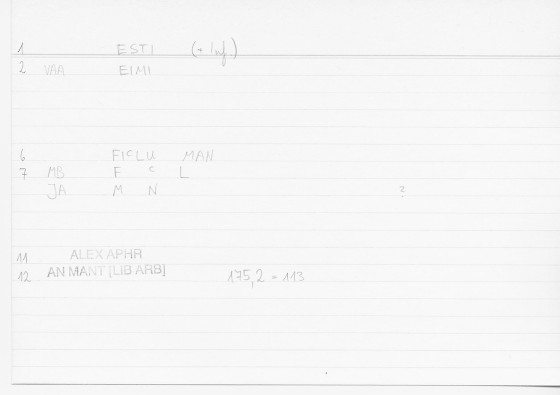 1 ESTI (+ Inf.)
2 VAA EIMI
6 FICLU MAN
7 MB F C L
JA M N ?
11 ALEX APHR
12 AN MANT [LIB ARB] 175,2 = 113